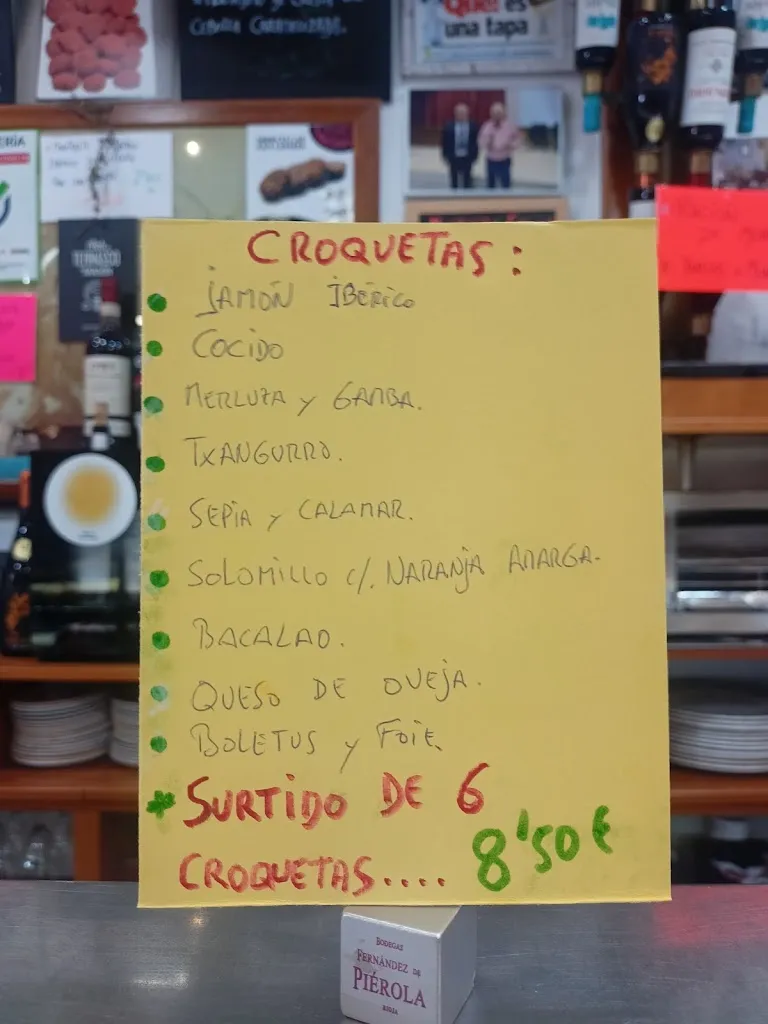 CEBOLLA CARAMELIZADA.
Que! es
una tapa
CROQUETAS:
JAMÓN IBÉRICO
COCIDO
MERLUZA Y GAMBA.
TXANGURRO.
SEPIA Y CALAMAR.
SOLOMILLO C/. NARANJA AMARGA.
BACALAO.
QUESO DE OVEJA.
BOLETUS Y FOIE.
SURTIDO DE 6
CROQUETAS.... 8'50 €
BODEGAS
FERNÁNDEZ DE
PIÉROLA
RIOJA
TERNASCO